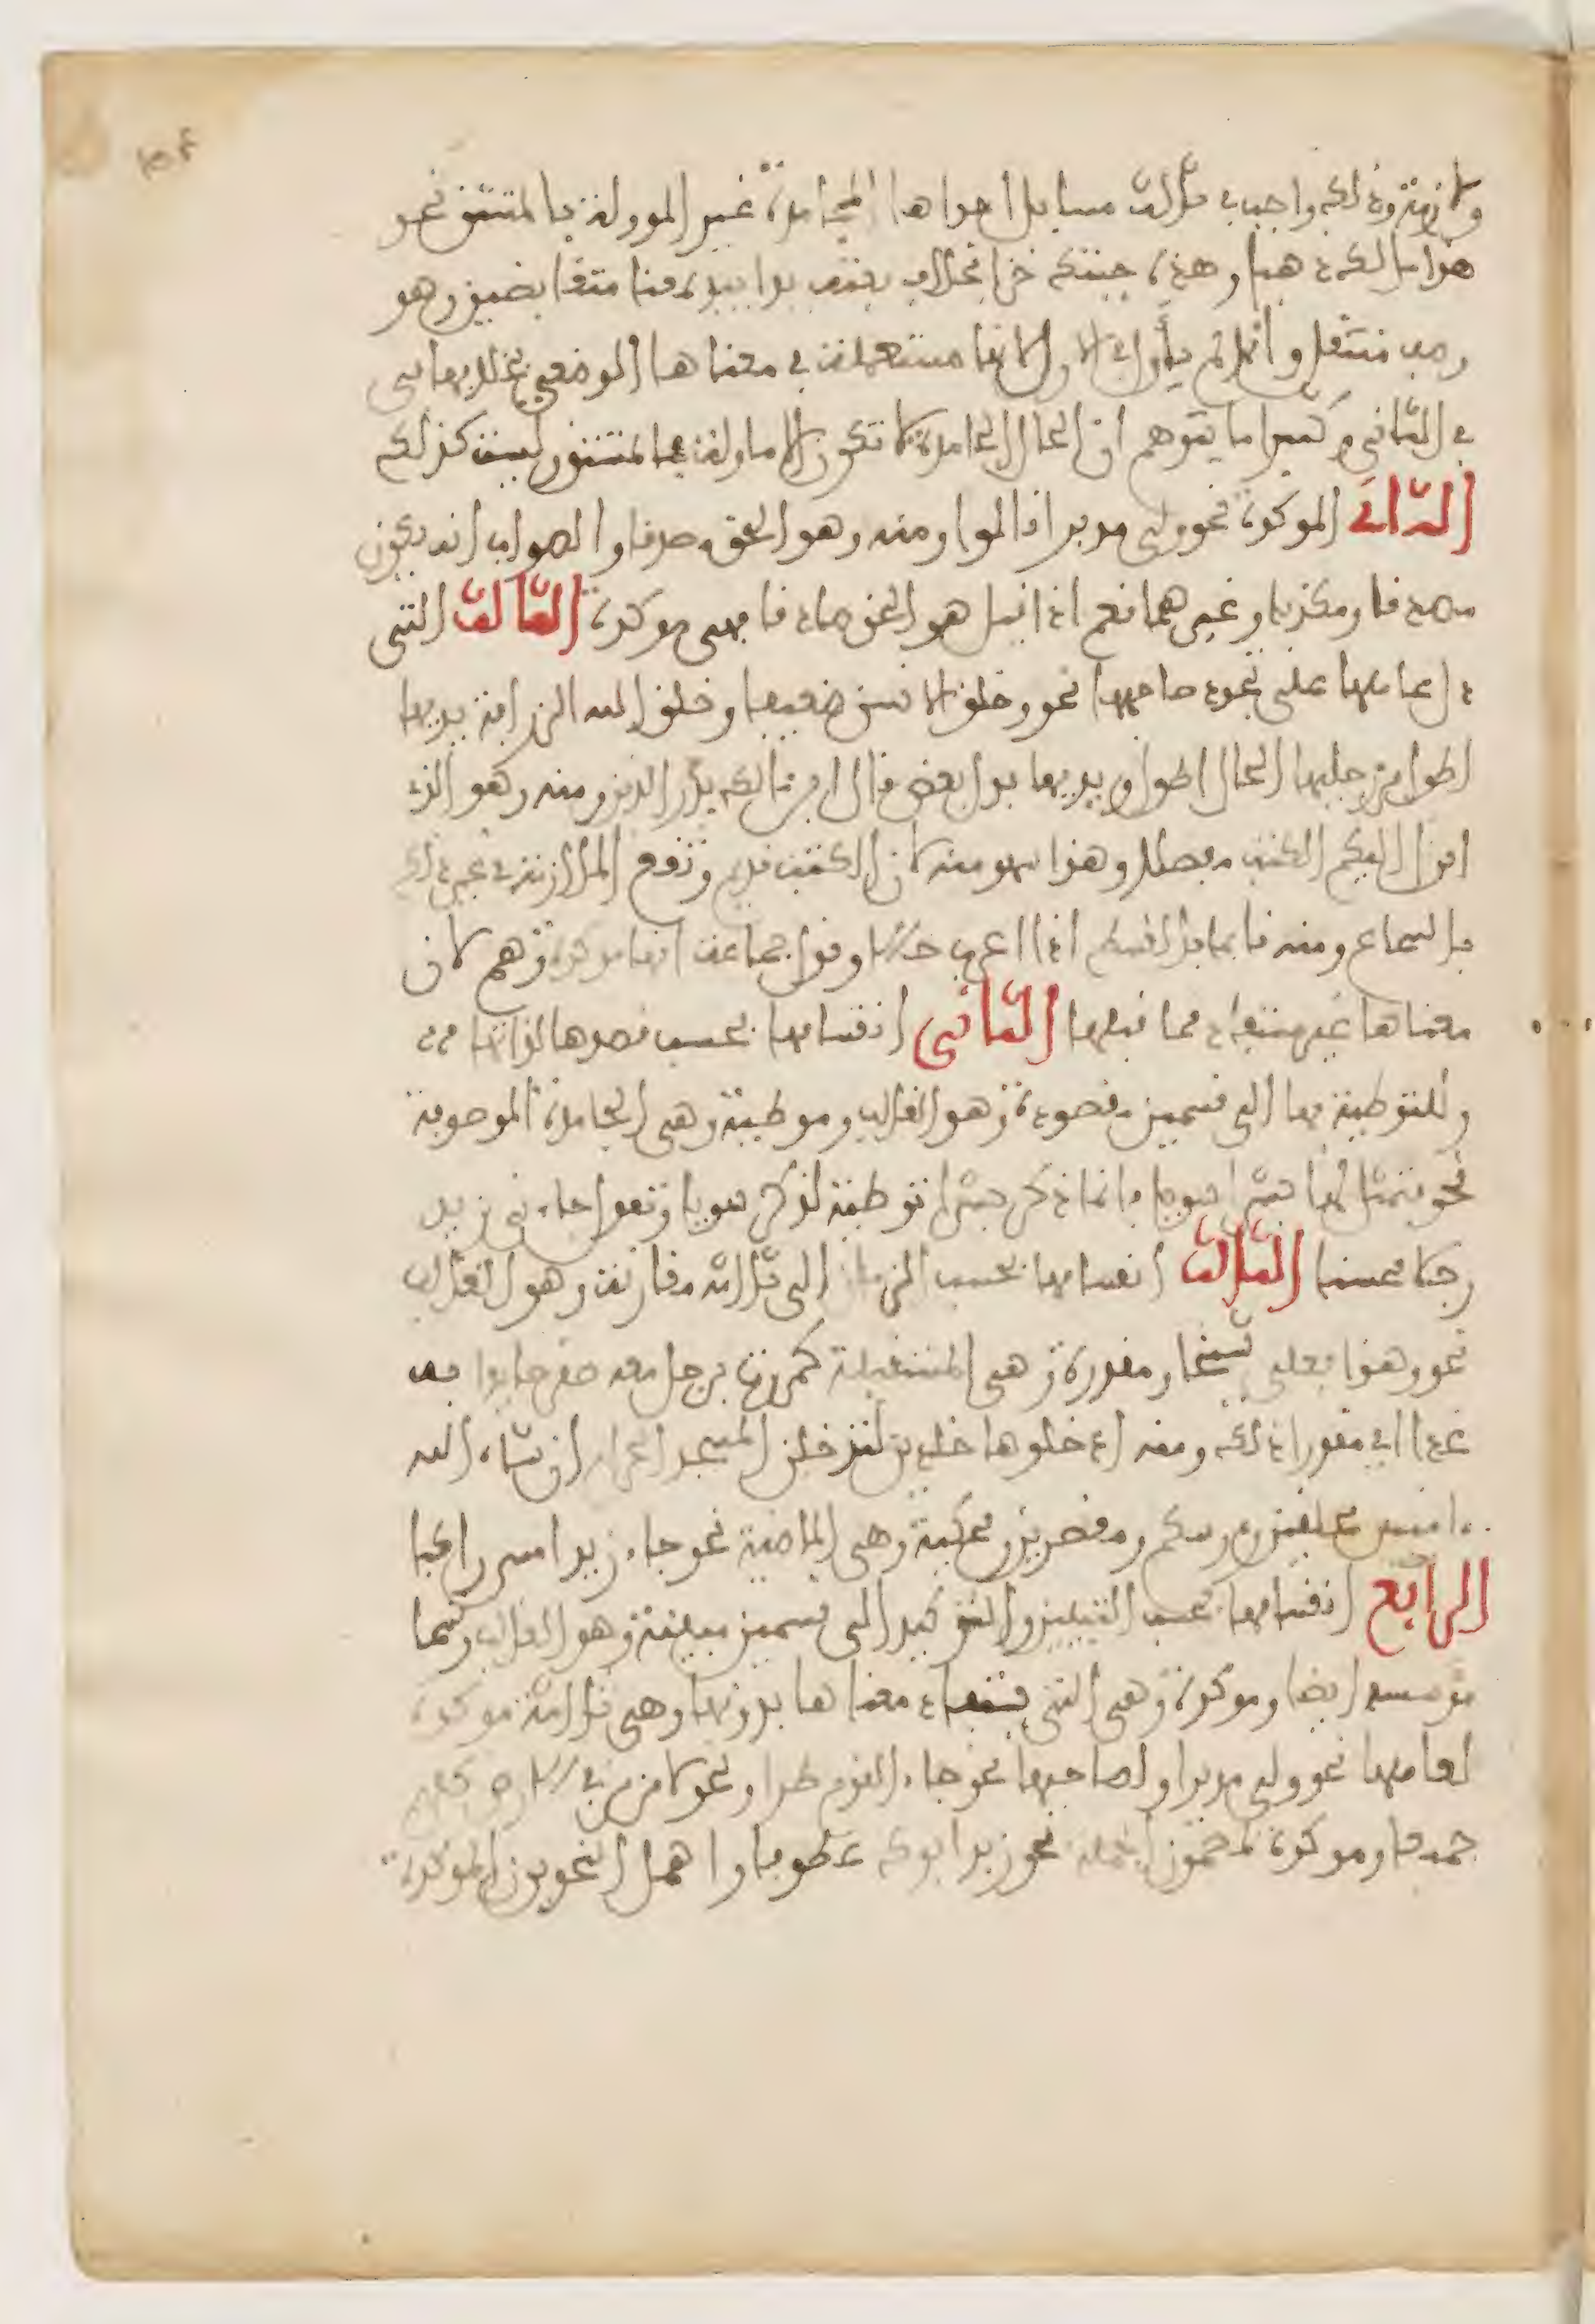 ولازمة وذلك واجب في ثلاث مسايل احداها الجامدة غير المؤولة بالمشتق نحو
هذا مالك ذهبا وهذه جبتك خزا بخلاف بعته يدا بيد بمعنى متقابضين وهو
وصف منتقل وانما لم يأول في الاول لانها مستعملة في معناها الوضعي بخلافها
في الثاني وكثيرا ما يتوهم ان الحال الجامدة لا تكون الا ماولة بالمشتق وليست كذلك
الثانى الموكدة نحو ولى مدبرا قالوا ومنه وهو الحق مصدقا والصواب انه يكون
مصدقا ومكذبا وغيرهما نعم اذا قيل هو الحق صادقا فهى موكدة الثالث التى
دل عاملها على تجدد صاحبها نحو وخلق الانسن ضعيفا وخلق الله الزرافة يديها
اطول من رجليها الحال اطول ويديها بدل بعض قال ابن مالك بدر الدين ومنه وهو الذى
انزل اليكم الكتب مفصلا وهذا سهو منه لان الكتب قديم وتقع الملازمة في غير ذلك
بالسماع ومنه قايما بالقسط اذا اعرب حالا وقول جماعة انها موكدة وهم لان
معناها غير مستفاد مما قبلها الثانى انقسامها بحسب قصدها لذاتها
وللتوطية بها الى قسمين مقصودة وهو الغالب وموطية وهى الجامدة الموصوفة
نحو فتمثل لها بشرا سويا فانما ذكر بشرا توطية لذكر سويا وتقول جاءنى زيد
رجلا محسنا الثالث انقسامها بحسب الزمان الى ثلاثة مقارنة وهو الغالب
نحو وهذا بعلى شيخا ومقدرة وهى المستقبلة كمررت برجل معه صقر صايدا به
غدا اى مقدرا ذلك ومنه ادخلوها خلدين لتدخلن المسجد الحرام ان شاء الله
ءامنين محلقين رءوسكم ومقصرين ومحكية وهى الماضية نحو جاء زيد امس راكبا
الرابع انقسامها بحسب التبيين والتوكيد الى قسمين مبينة وهو الغالب وتسما
موسسة ايضا وموكدة وهى التى يستفاد معناها بدونها وهى ثلاثة موكدة
لعاملها نحو ولى مدبرا ولصاحبها نحو جاء القوم طرا ونحو لامن من في الارض كلهم
جميعا وموكدة لمضمون الجملة نحو زيد ابوك عطوفا واهمل النحويون الموكدة